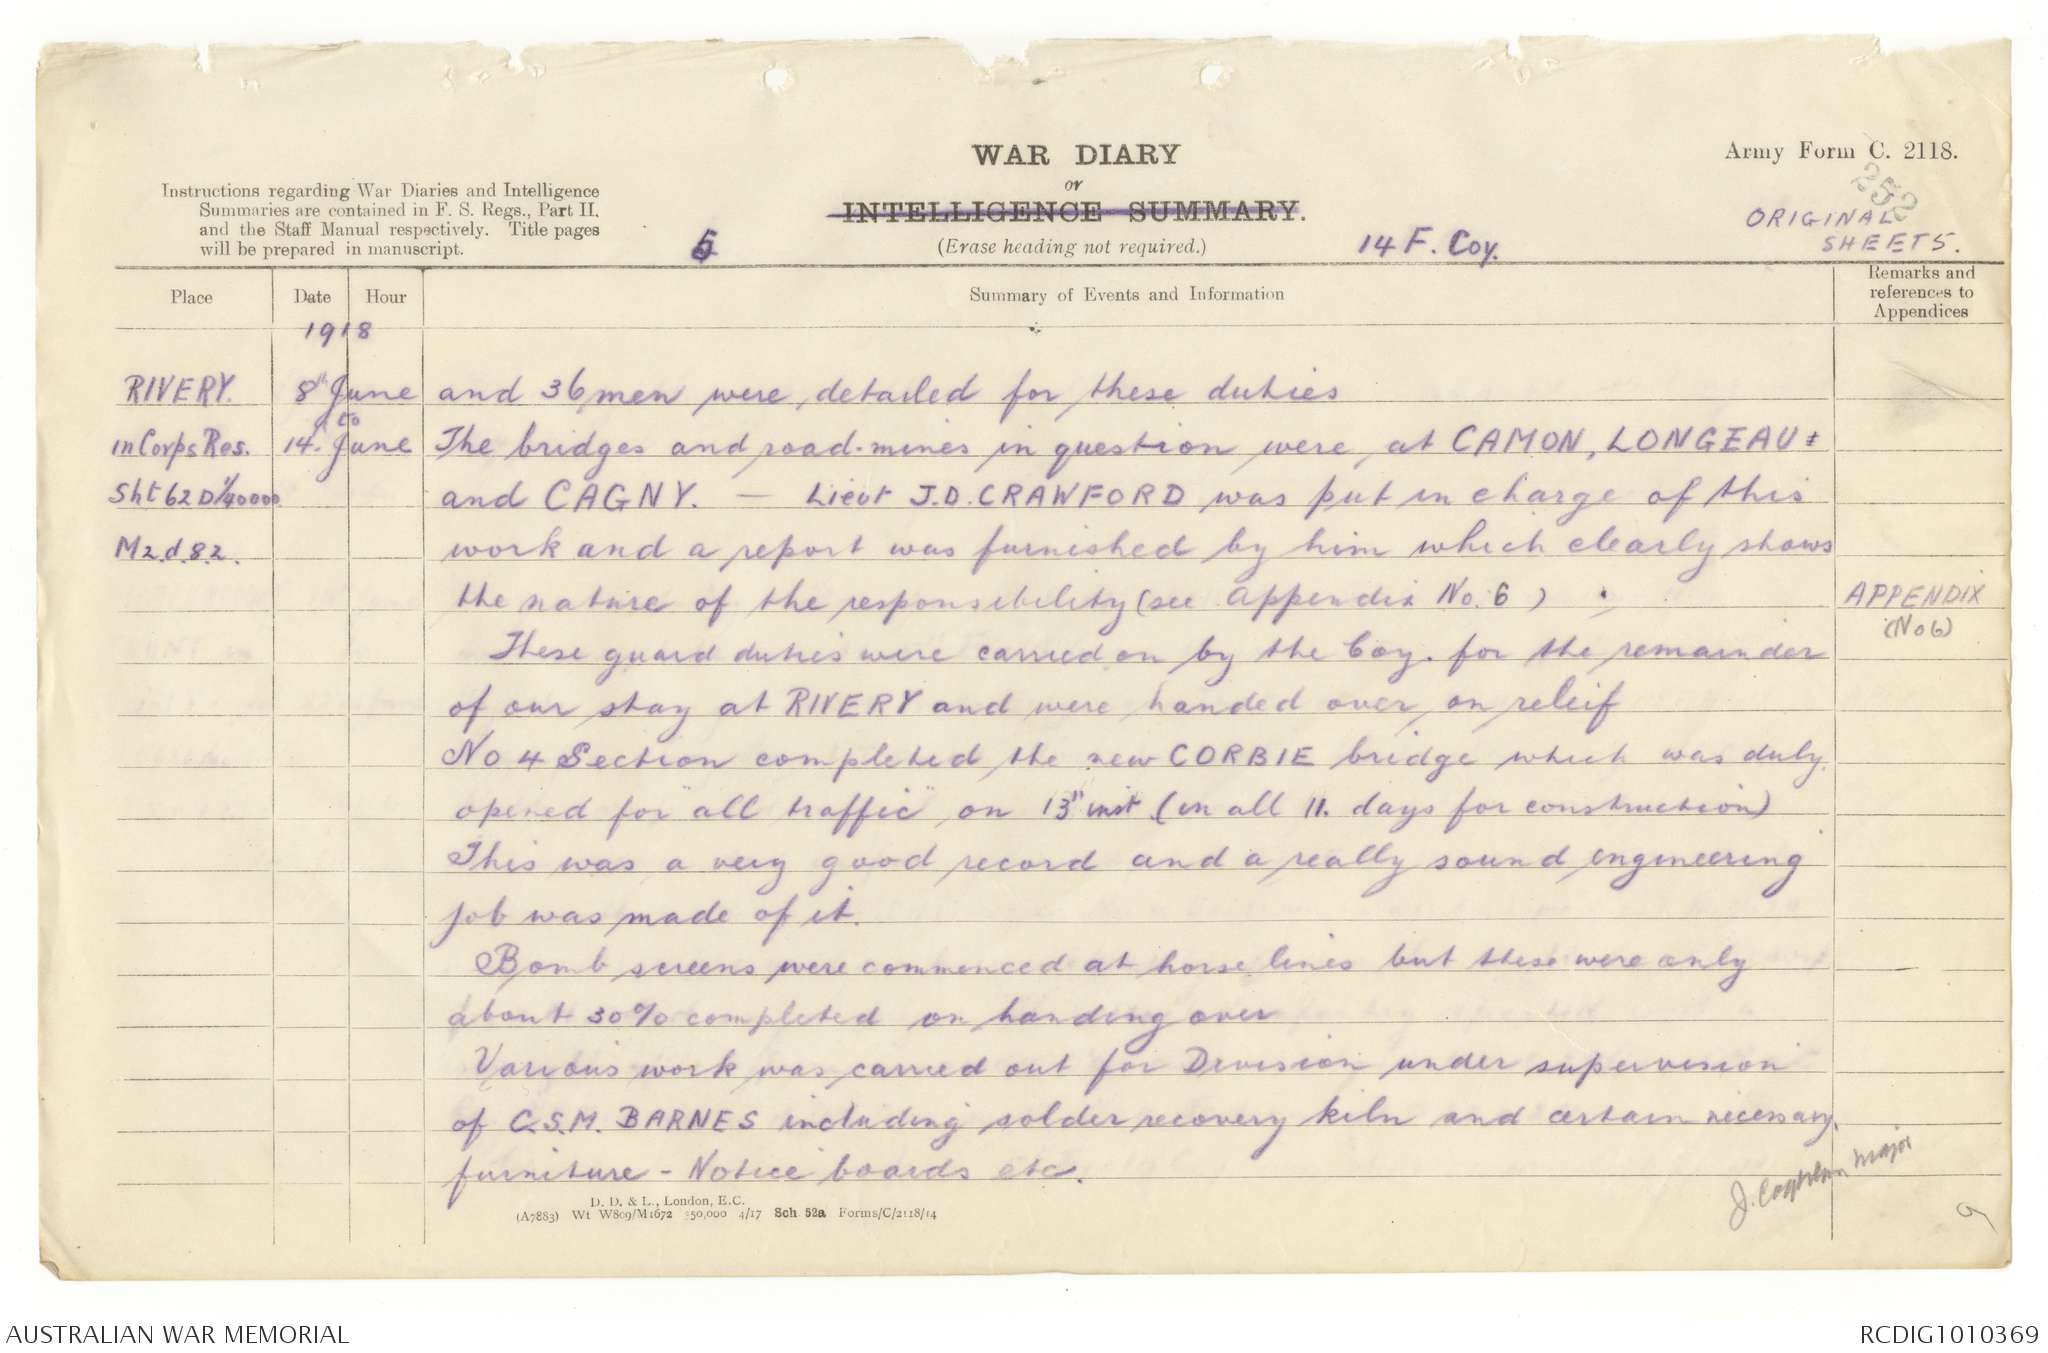 WAR DIARY
or
INTELLIGENCE SUMMARY.
(Erase heading not required.)
Army Form C. 2118.
252
ORIGINAL
SHEETS.
Instructions regarding War Diaries and Intelligence
Summaries are contained in F. S. Regs., Part II.
and the Staff Manual respectively. Title pages
will be prepared in manuscript.
14 F. Coy.
Place
Date
Hour
Summary of Events and Information
Remarks and
references to
Appendices
1918
RIVERY. 8th June and 36 men were detailed for these duties
to
in Corps Res. 14th June The bridges and road-mines in question were at CAMON, LONGEAU &
Sht 62D 1/40000 and CAGNY. — Lieut J.D. CRAWFORD was put in charge of this
M2.d.8.2. work and a report was furnished by him which clearly shows
the nature of the responsibility (see Appendix No. 6) APPENDIX
(No 6)
These guard duties were carried on by the Coy. for the remainder
of our stay at RIVERY and were handed over on releif
No 4 Section completed the new CORBIE bridge which was duly
opened for "all traffic" on 13th inst (in all 11. days for construction)
This was a very good record and a really sound engineering
job was made of it.
Bomb screens were commenced at horse lines but these were only
about 30% completed on handing over
Various work was carried out for Division under supervision
of C.S.M. BARNES including solder recovery kiln and certain necessary
furniture - Notice boards etc.
Major
D. D. & L., London, E.C.
(A7883) Wt W809/M1672 350,000 4/17 Sch 52a Forms/C/2118/14
AUSTRALIAN WAR MEMORIAL
RCDIG1010369